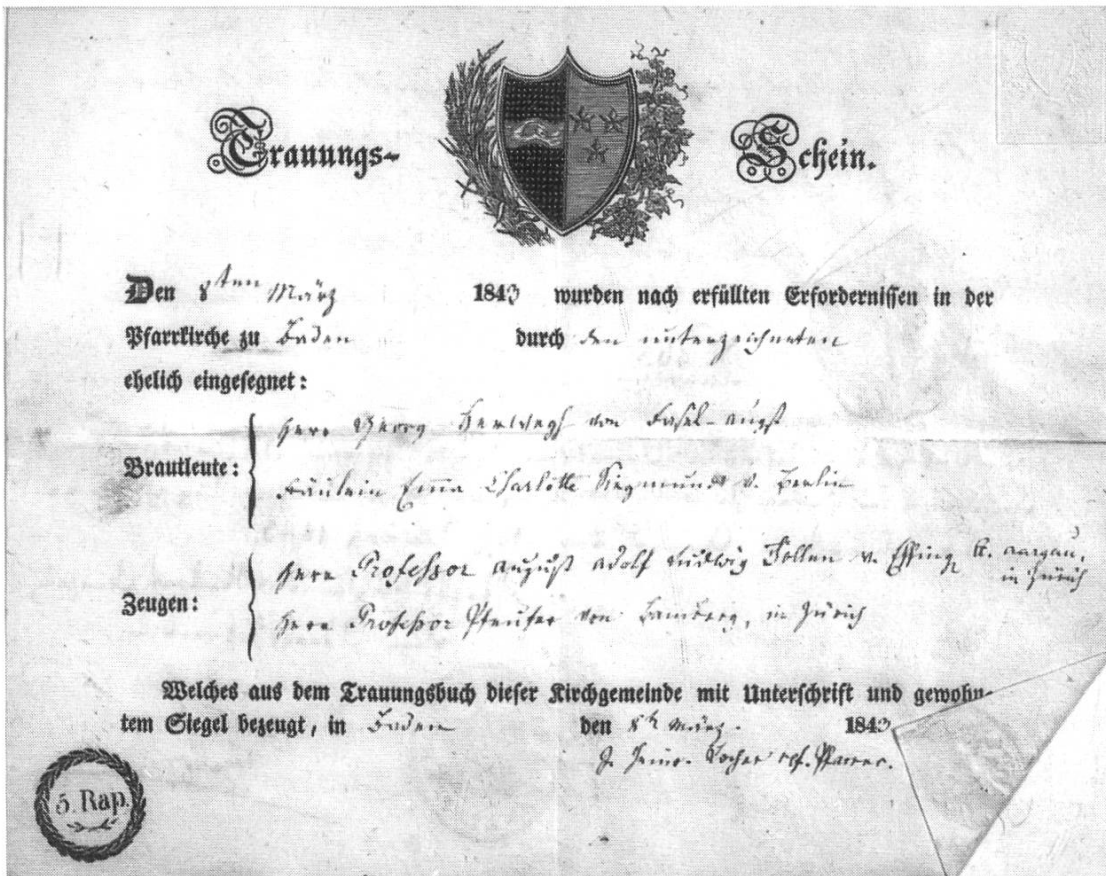 Trauungs-Schein.
Den 8ten März 1843 wurden nach erfüllten Erfordernissen in der
Pfarrkirche zu Baden durch den unterzeichneten
ehelich eingesegnet:
Brautleute:
Herr Georg Herwegh von Basel-Augst
Fräulein Emma Charlotte Siegmund v. Berlin
Zeugen:
Herr Professor August Adolf Ludwig Follen v. Effing K. Aargau,
in Zürich
Herr Professor Pfeufer von Bamberg, in Zürich
Welches aus dem Trauungsbuch dieser Kirchgemeinde mit Unterschrift und gewohn-
tem Siegel bezeugt, in Baden den 8t März. 1843
J. Heinr. Locher ref. Pfarrer.
5. Rap.